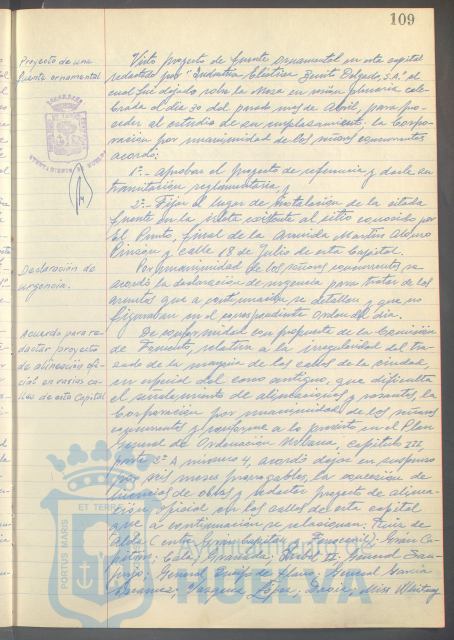 109
Proyecto de una
fuente ornamental
Visto proyecto de fuente ornamental en esta capital
redactado por "Industria Eléctrica Benito Delgado, S.A.", el
cual fué dejado sobre la Mesa en sesión plenaria cele-
brada el día 30 del pasado mes de Abril, para pro-
ceder al estudio de su emplazamiento. La Corpo-
ración por unanimidad de los señores concurrentes
acordó:
1º.- Aprobar el proyecto de referencia y darle su
tramitación reglamentaria, y
2º.- Fijar el lugar de instalación de la citada
fuente en la existente al sitio conocido por
El Punto, final de la Avenida Martín Alonso
Pinzón y calle 18 de Julio de esta Capital.
Declaración de
urgencia.
Por unanimidad de los señores concurrentes se
acordó la declaración de urgencia para tratar de los
asuntos que a continuación se detallan y que no
figuraban en el correspondiente Orden del día.
Acuerdo para re-
dactar proyecto
de alineación ofi-
cial en varias ca-
lles de esta Capital
De conformidad con propuesta de la Comisión
de Fomento, relativa a la irregularidad del tra-
zado de la mayoría de las calles de la ciudad,
en especial del casco antiguo, que dificulta
el señalamiento de alineaciones y rasantes, la
Corporación por unanimidad de los señores
concurrentes y conforme a lo previsto en el Plan
General de Ordenación Urbana, capítulo III,
parte 3ª A número 4, acordó dejar en suspenso
por seis meses prorrogables, la concesión de
licencias de obras y redactar proyecto de alinea-
ción oficial en las calles de esta capital
que a continuación se relacionan: Ruiz de
Alda (entre Gran Capitán y ); Gran Ca-
pitán; Cala; Granada; ; General San-
jurjo; General Queipo de Llano; General García
; Vázquez López; ; Miss Whitney
PORTUS MARIS
ET TERRAE
Ayuntamiento de
HUELVA